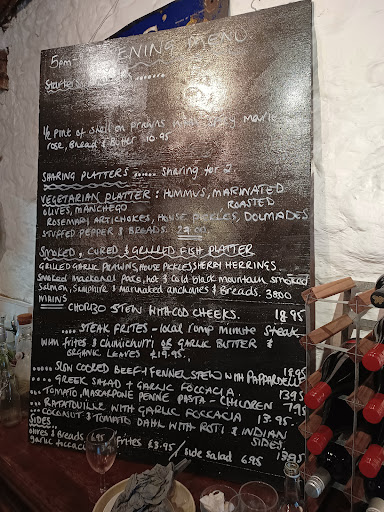 5pm- EVENING MENU
Starters
1/2 pint of shell on prawns with marie
rose, Bread & Butter 10.95
SHARING PLATTERS ..... Sharing for 2.
VEGETARIAN PLATTER : HUMMUS, MARINATED
OLIVES, MANCHEGO ROASTED
ROSEMARY ARTICHOKES, HOUSE PICKLES, DOLMADES
STUFFED PEPPER & BREADS. 27.00.
SMOKED, CURED & GRILLED FISH PLATTER
GRILLED GARLIC PRAWNS, HOUSE PICKLES, SHERRY HERRINGS
Smoked Mackerel Pate, hot & cold black mountain smoked
Salmon, Samphire & Marinated anchovies & Breads. 38.00
MAINS
CHORIZO STEW WITH COD CHEEKS. 18.95
.... STEAK FRITES - local rump minute steak
with frites & chimichurri or GARLIC BUTTER &
ORGANIC LEAVES £19.95.
..... SLOW COOKED BEEF & FENNEL STEW WITH PAPPARDELLE 18.95
.... GREEK SALAD + GARLIC FOCCACIA. 13.95
... TOMATO, MASCARPONE PENNE PASTA - CHILDREN 7.95
... RATATOUILLE WITH GARLIC FOCCACIA 13.95.
... COCONUT & TOMATO DAHL WITH ROTI & INDIAN
SIDES 13.95
SIDES
Olives & Breads 6.95 Frites £3.95 Side salad 6.95
garlic foccacia